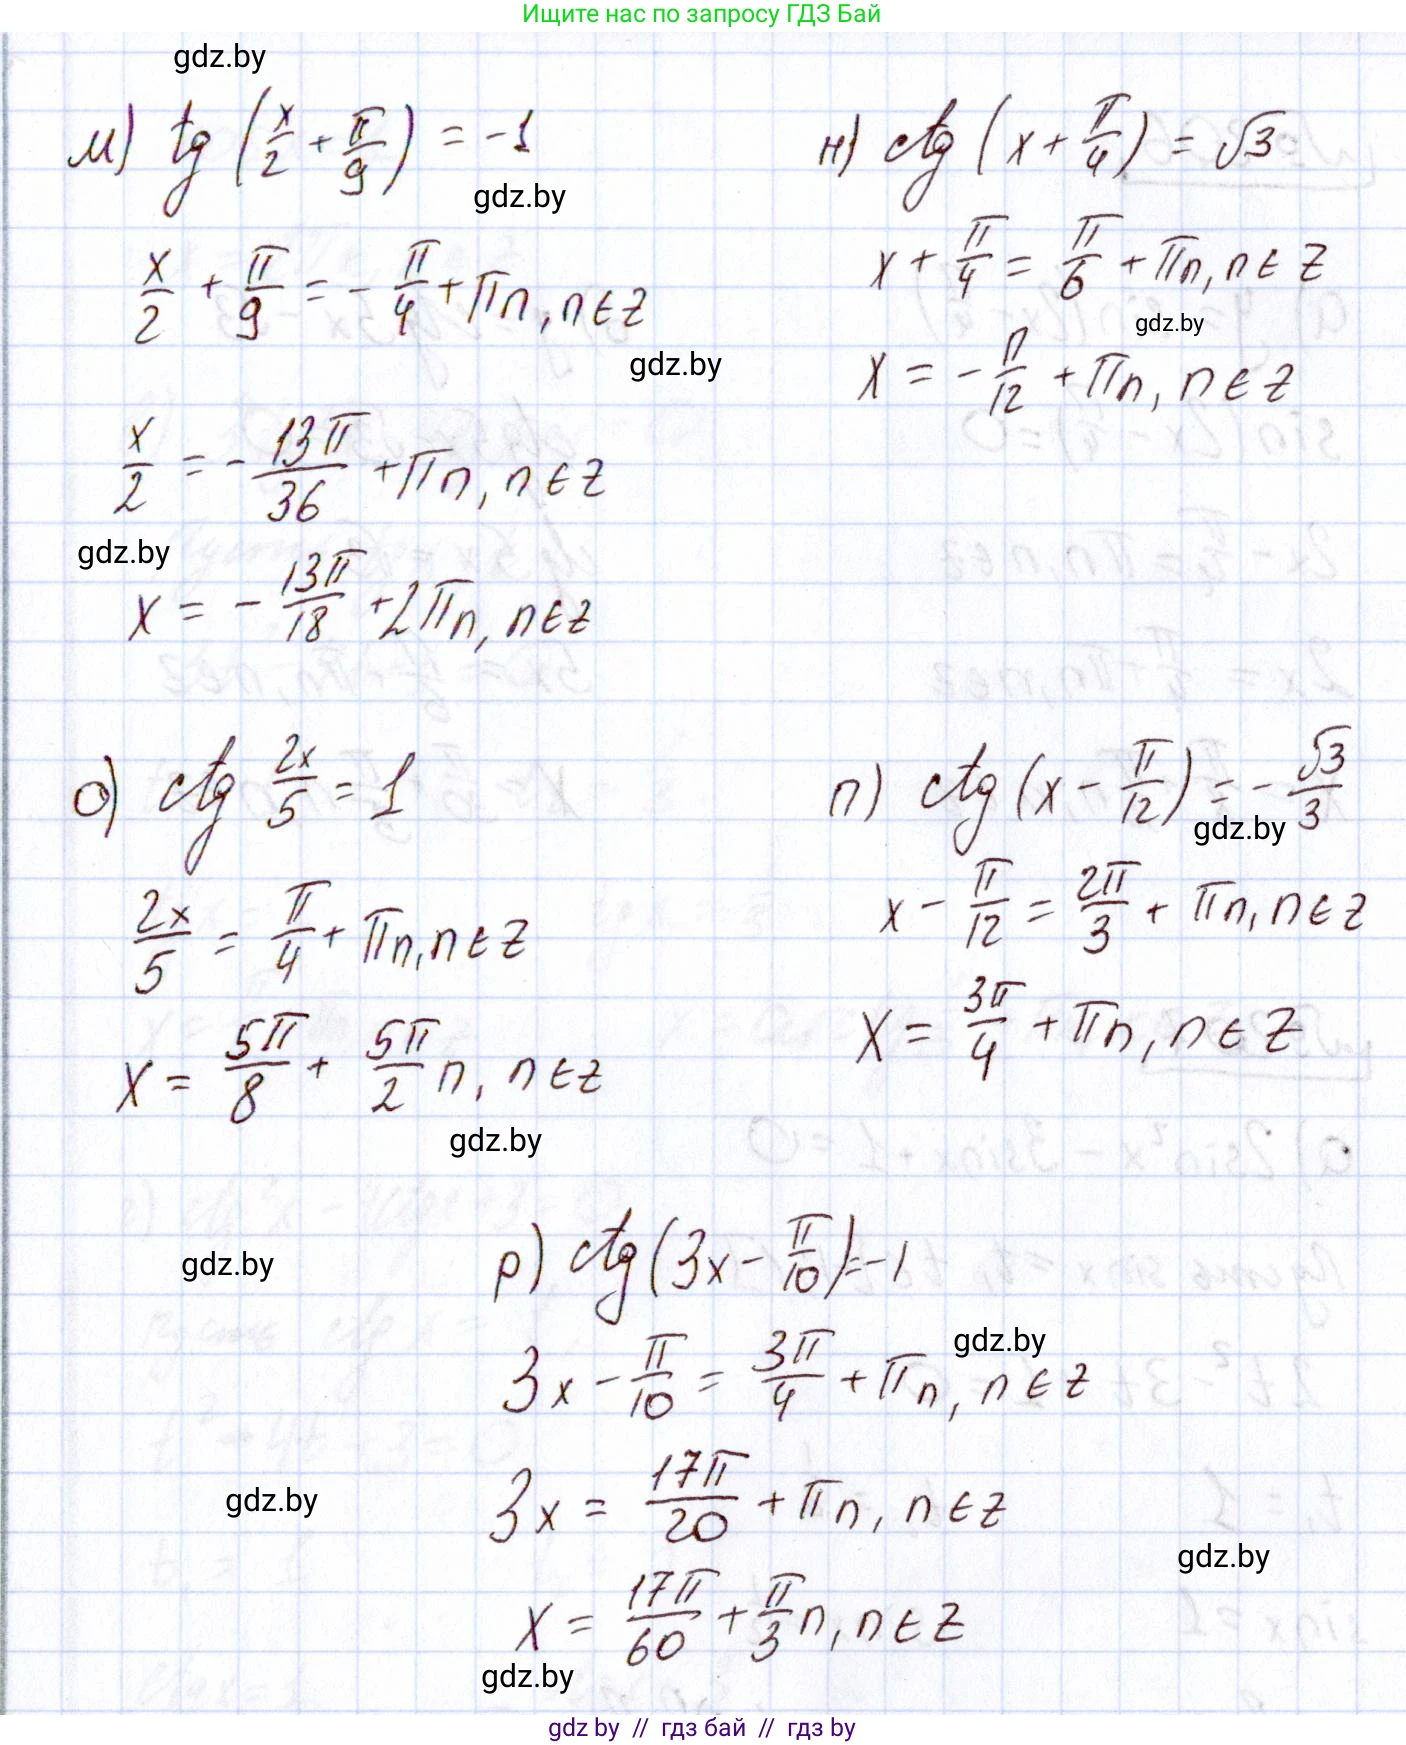 Ищите нас по запросу ГДЗ Бай
gdz.by
м) tg (x/2 + π/9) = -1
gdz.by
x/2 + π/9 = -π/4 + πn, n ∈ Z
gdz.by
x/2 = -13π/36 + πn, n ∈ Z
gdz.by
x = -13π/18 + 2πn, n ∈ Z
н) ctg (x + π/4) = √3
x + π/4 = π/6 + πn, n ∈ Z
gdz.by
x = -π/12 + πn, n ∈ Z
о) ctg 2x/5 = 1
2x/5 = π/4 + πn, n ∈ Z
x = 5π/8 + 5π/2 n, n ∈ Z
gdz.by
п) ctg (x - π/12) = -√3/3
gdz.by
x - π/12 = 2π/3 + πn, n ∈ Z
x = 3π/4 + πn, n ∈ Z
gdz.by
р) ctg (3x - π/10) = -1
gdz.by
3x - π/10 = 3π/4 + πn, n ∈ Z
gdz.by
3x = 17π/20 + πn, n ∈ Z
gdz.by
x = 17π/60 + π/3 n, n ∈ Z
gdz.by
gdz.by // гдз бай // гдз by